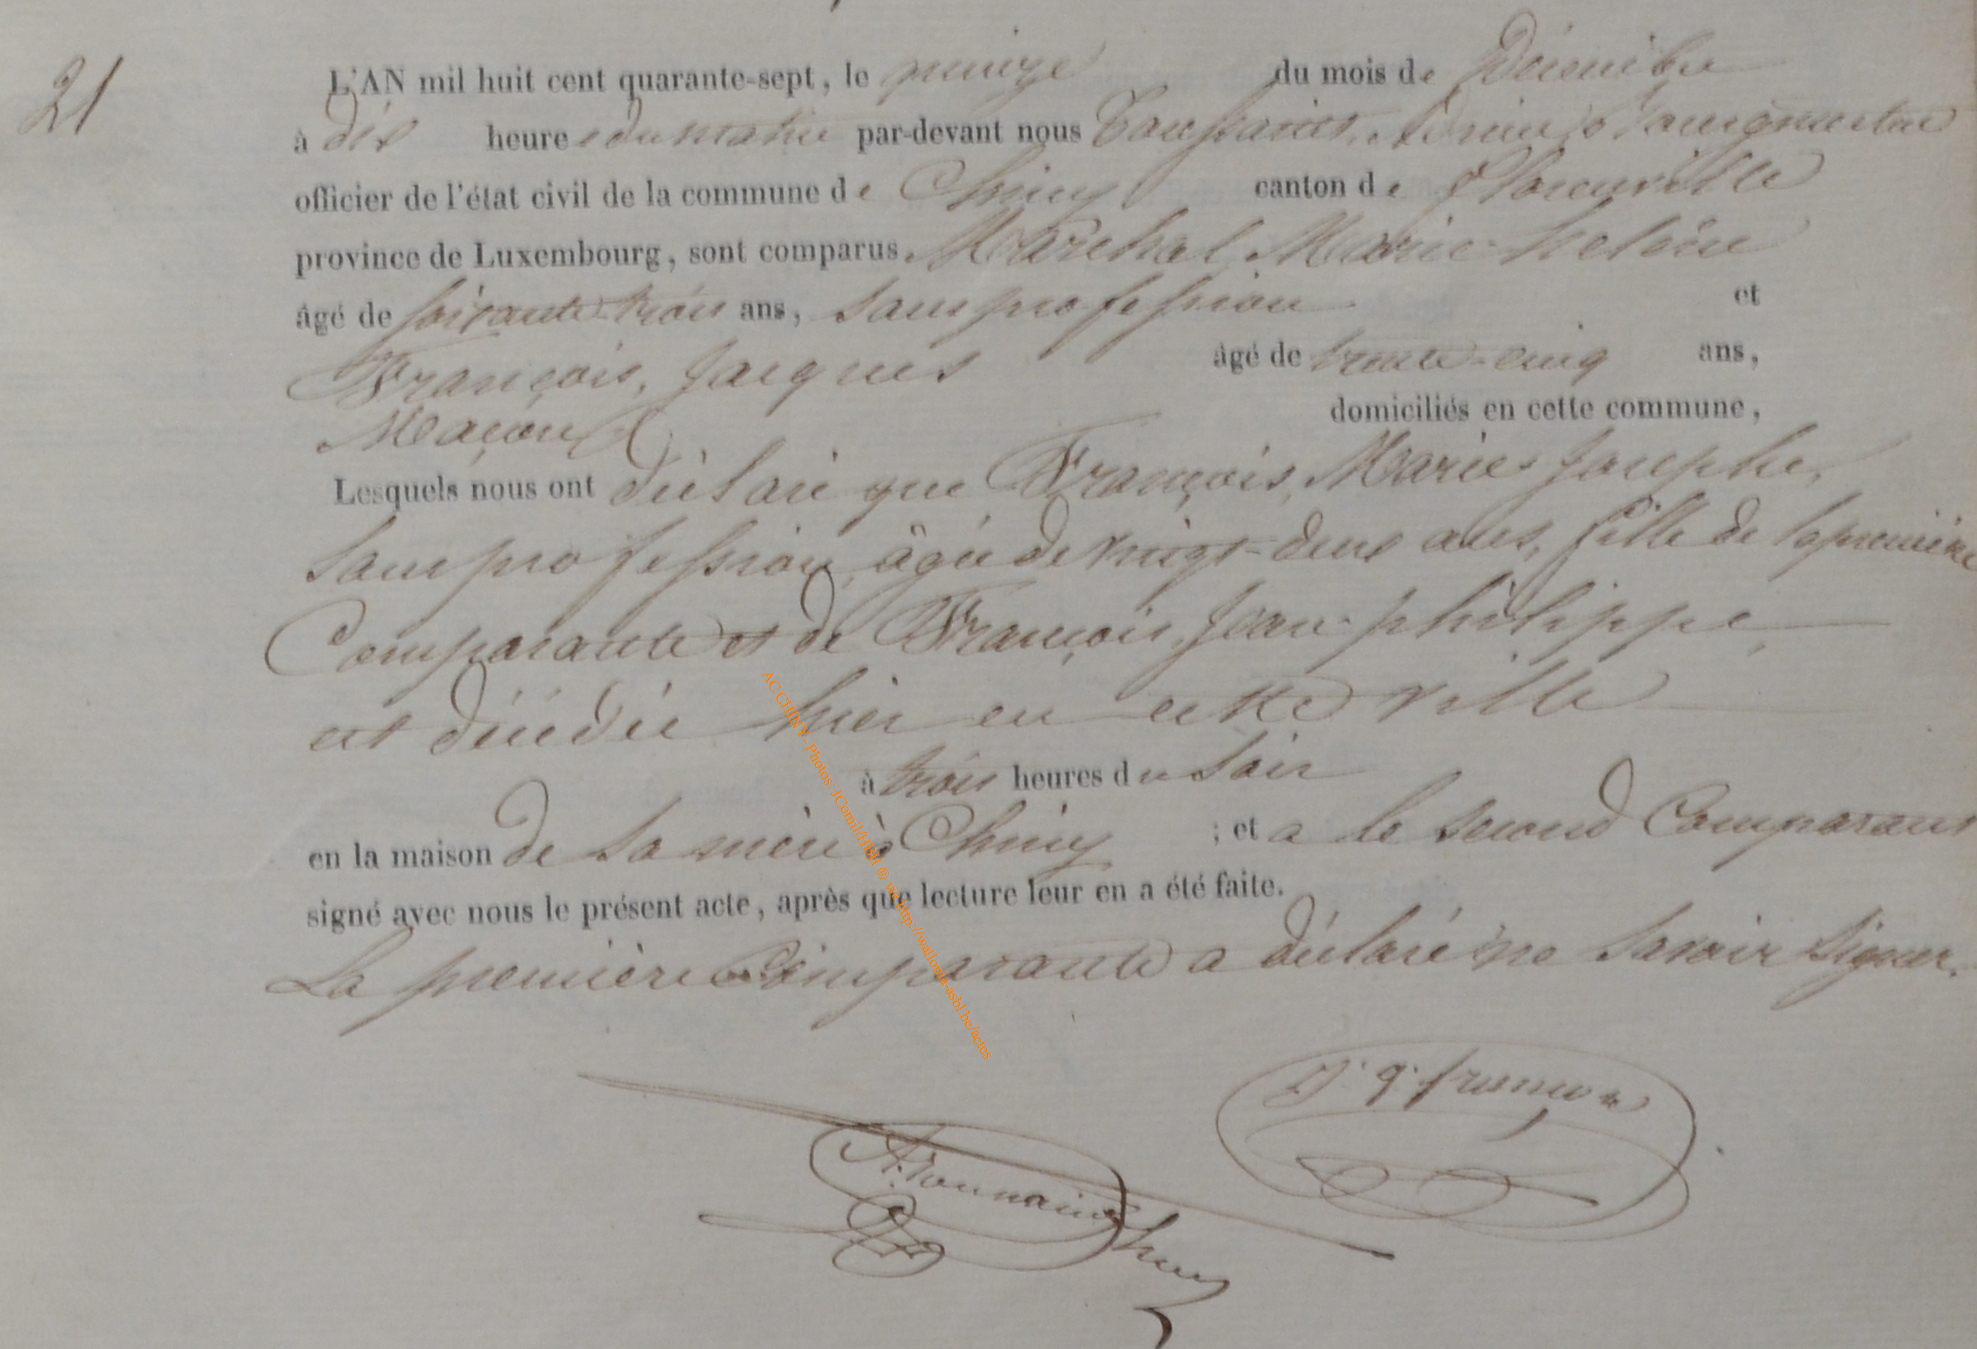 21
L'AN mil huit cent quarante-sept, le quinze du mois de Décembre
à dix heures du matin par-devant nous Toussaint, Adrien, Bourgmestre
officier de l'état civil de la commune de Chiny canton de Florenville
province de Luxembourg, sont comparus Maréchal, Marie-helène
âgé de soixante-trois ans, sans profession et
François, Jacques âgé de trente-cinq ans,
Maçon domiciliés en cette commune,
Lesquels nous ont déclaré que François, Marie Josephe,
sans profession, âgée de vingt-deux ans, fille de la première
Comparante et de François, Jean-philippe,
est décédée hier en cette ville
à trois heures du soir
en la maison de sa mère à Chiny ; et a le second Comparant
signé avec nous le présent acte, après que lecture leur en a été faite.
La première Comparante a déclaré ne savoir signer.
françois
AC CHINY- Photos http://wallonia-asbl.be/actes